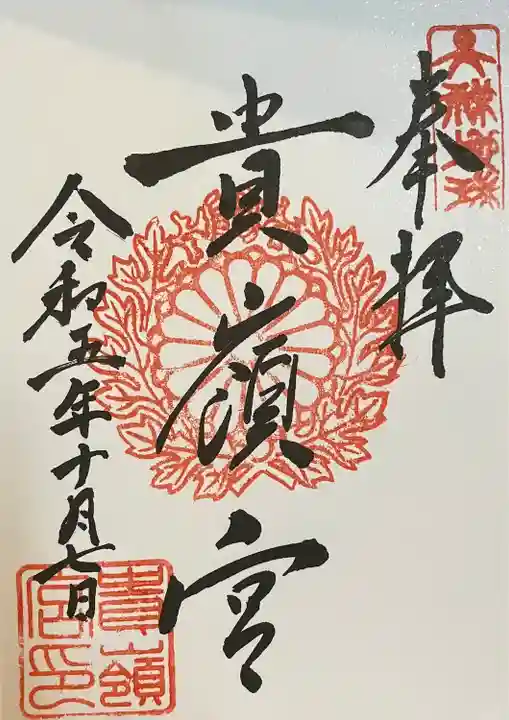 奉拝
貴嶺宮
令和五年十月七日
貴嶺
宮印